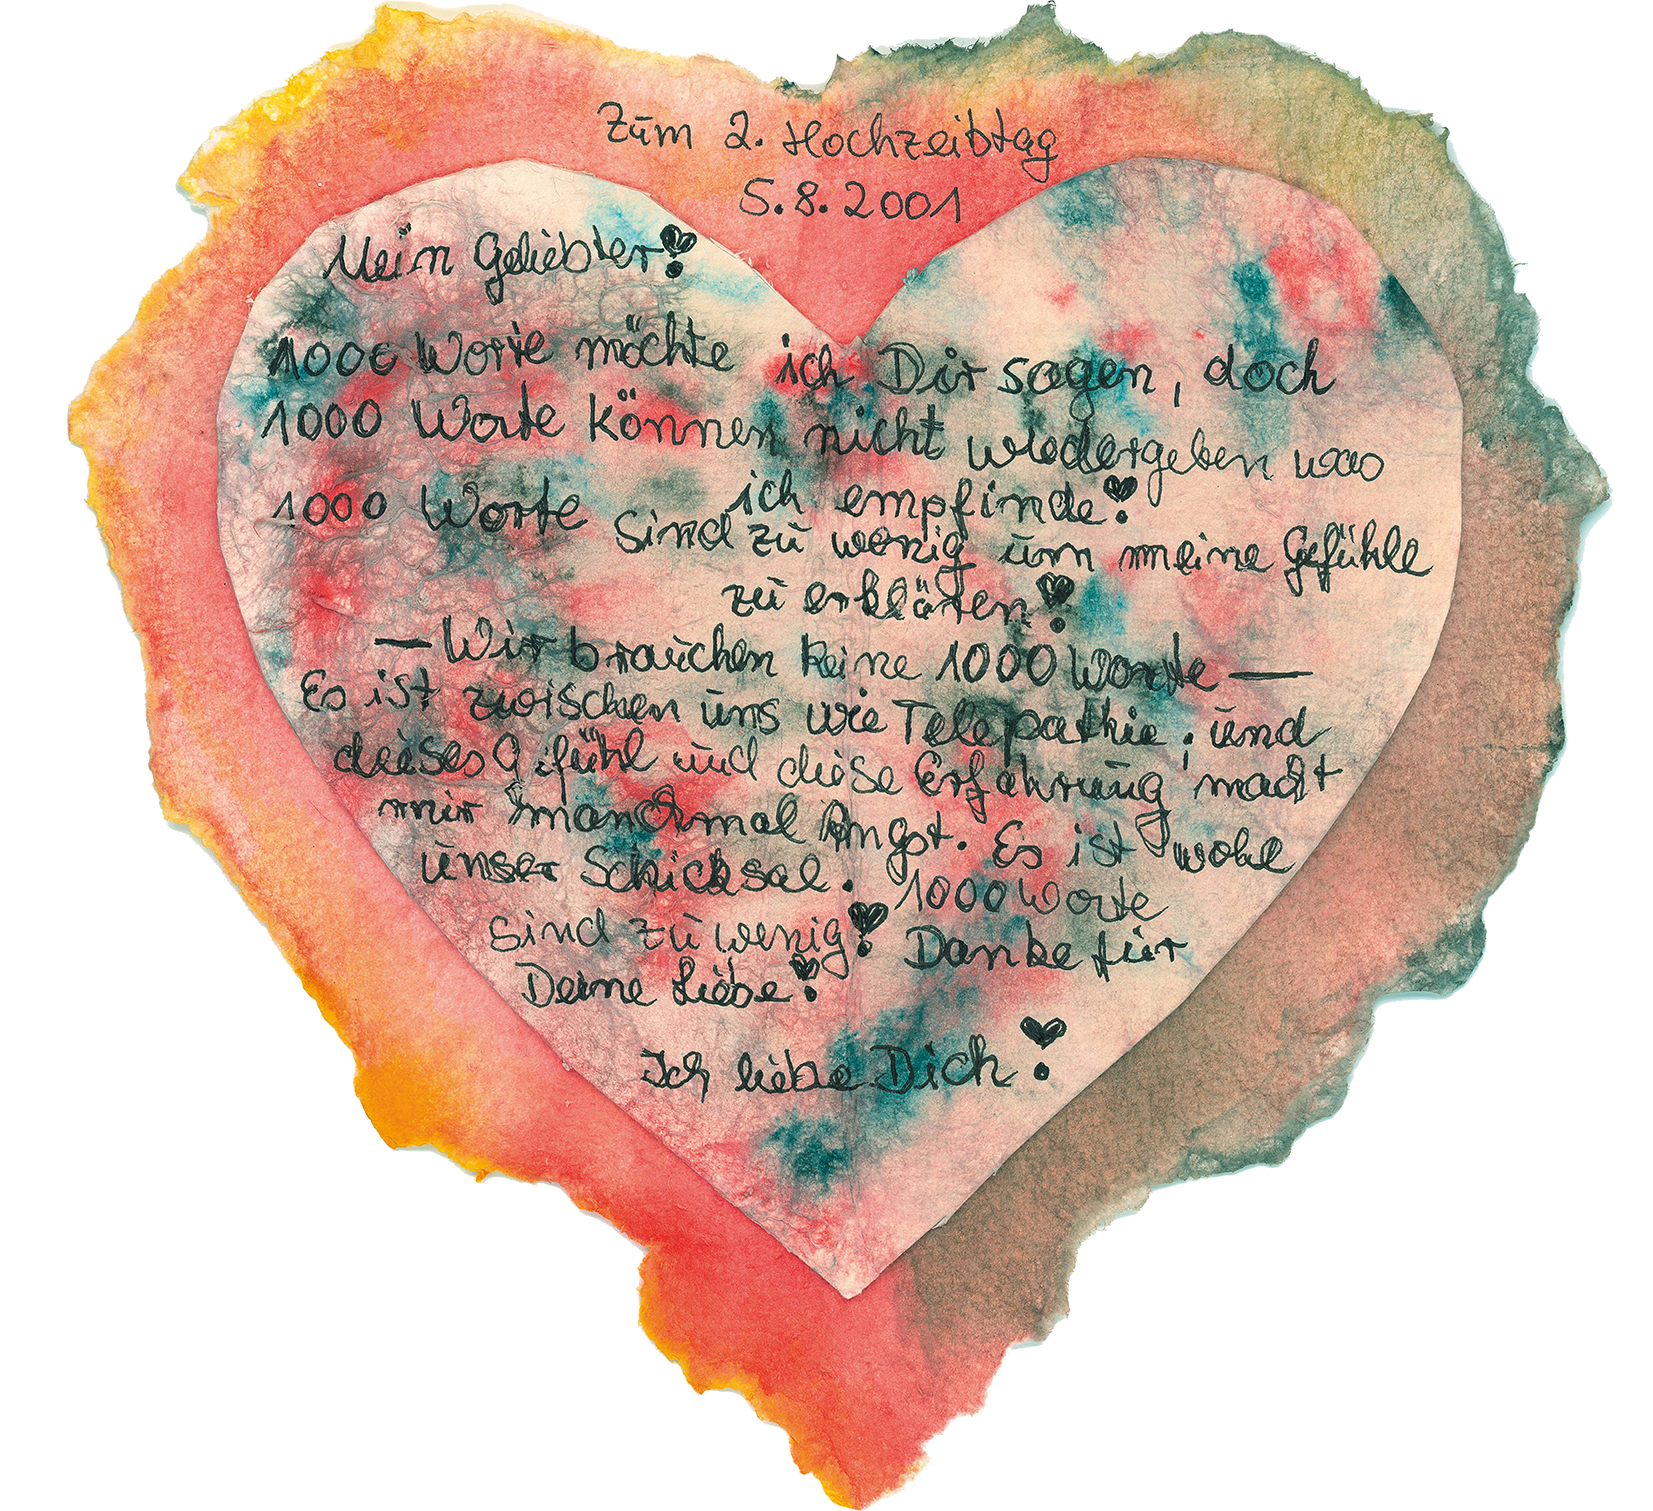 Zum 2. Hochzeitstag
5.8.2001
Mein Geliebter!
1000 Worte möchte ich Dir sagen, doch
1000 Worte können nicht wiedergeben was
ich empfinde!
1000 Worte sind zu wenig um meine Gefühle
zu erklären!
— Wir brauchen keine 1000 Worte —
Es ist zwischen uns wie Telepathie, und
dieses Gefühl und diese Erfahrung macht
mir manchmal Angst. Es ist wohl
unser Schicksal. 1000 Worte
sind zu wenig! Danke für
Deine Liebe!
Ich liebe Dich!